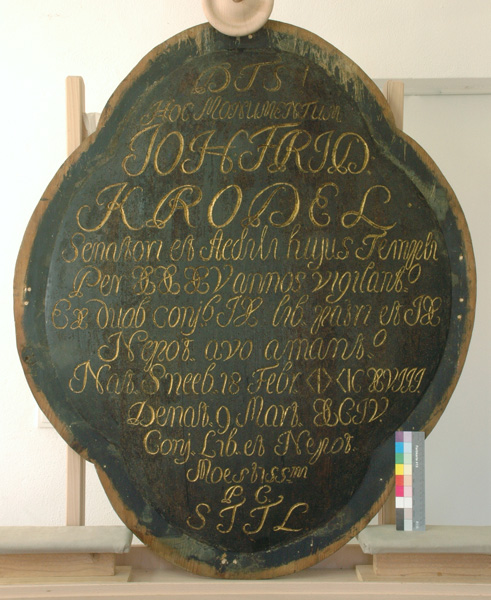 D T S
HOC MONUMENTUM
JOH FRID.
KRODEL
Senatori et Aedili hujus Templi
Per XXXV annos vigilant.º
Ex duab conj. IX lib. patri et IX
Nepot. avo amant.º
Nat. Sneeb. 18 Febr.
Denat. 9 Mart. XCIV
Conj. Lib. et Nepot.
Moestissmi
P. C.
S T T L